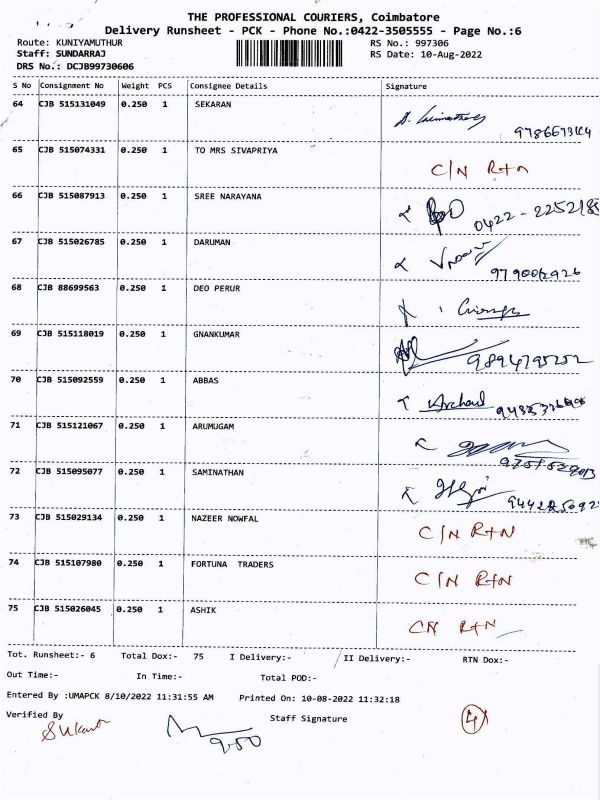 THE PROFESSIONAL COURIERS, Coimbatore
Delivery Runsheet - PCK - Phone No.:0422-3505555 - Page No.:6
Route: KUNIYAMUTHUR RS No.: 997306
Staff: SUNDARRAJ RS Date: 10-Aug-2022
DRS No.: DCJB99730606
S No Consignment No Weight PCS Consignee Details Signature
64 CJB 515131049 0.250 1 SEKARAN
65 CJB 515074331 0.250 1 TO MRS SIVAPRIYA C/N R+n
66 CJB 515087913 0.250 1 SREE NARAYANA 0422-2252185
67 CJB 515026785 0.250 1 DARUMAN
68 CJB 88699563 0.250 1 DEO PERUR
69 CJB 515118019 0.250 1 GNANKUMAR
70 CJB 515092559 0.250 1 ABBAS
71 CJB 515121067 0.250 1 ARUMUGAM
72 CJB 515095077 0.250 1 SAMINATHAN
73 CJB 515029134 0.250 1 NAZEER NOWFAL C/N R+N
74 CJB 515107980 0.250 1 FORTUNA TRADERS C/N R+N
75 CJB 515026045 0.250 1 ASHIK CN R+N
Tot. Runsheet:- 6 Total Dox:- 75 I Delivery:- II Delivery:- RTN Dox:-
Out Time:- In Time:- Total POD:-
Entered By :UMAPCK 8/10/2022 11:31:55 AM Printed On: 10-08-2022 11:32:18
Verified By Staff Signature
9.50
4